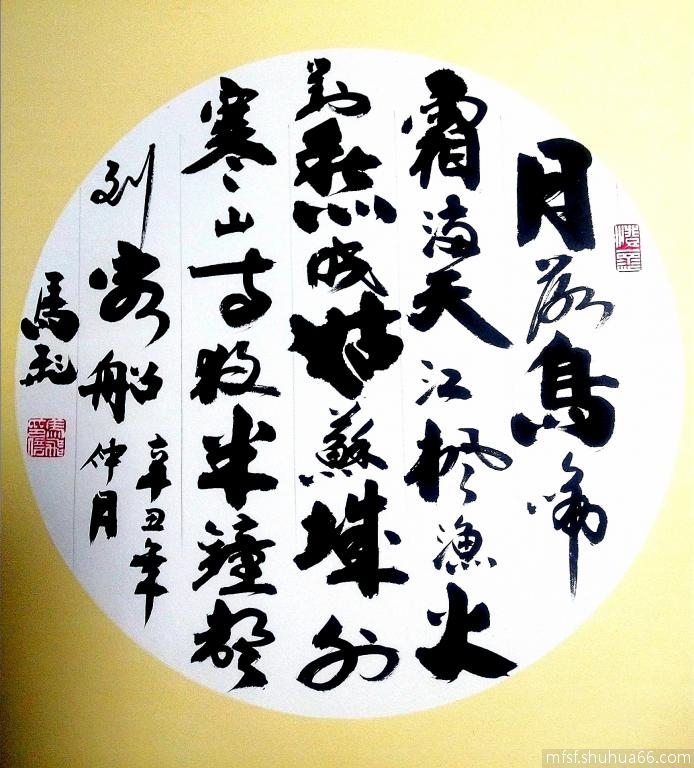 月落烏啼
霜滿天江楓漁火
對愁眠姑蘇城外
寒山寺夜半鐘聲
到客船
辛丑年
仲月
馬飛
馬飛印信
mfsf.shuhua66.com